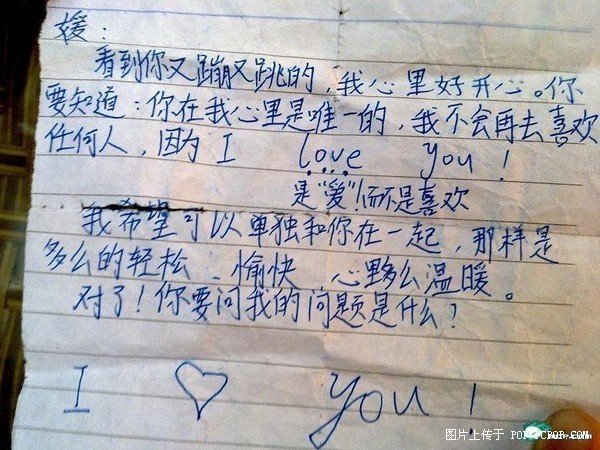 媛：
看到你又蹦又跳的，我心里好开心。你
要知道：你在我心里是唯一的，我不会再去喜欢
任何人，因为 I love you！
是“爱”！而不是喜欢
我希望可以单独和你在一起，那样是
多么的轻松、愉快、心里多么温暖。
对了！你要问我的问题是什么？
I ♡ you！
图片上传于